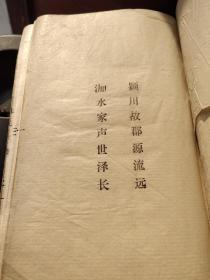 颍川故郡源流远
泇水家声世泽长